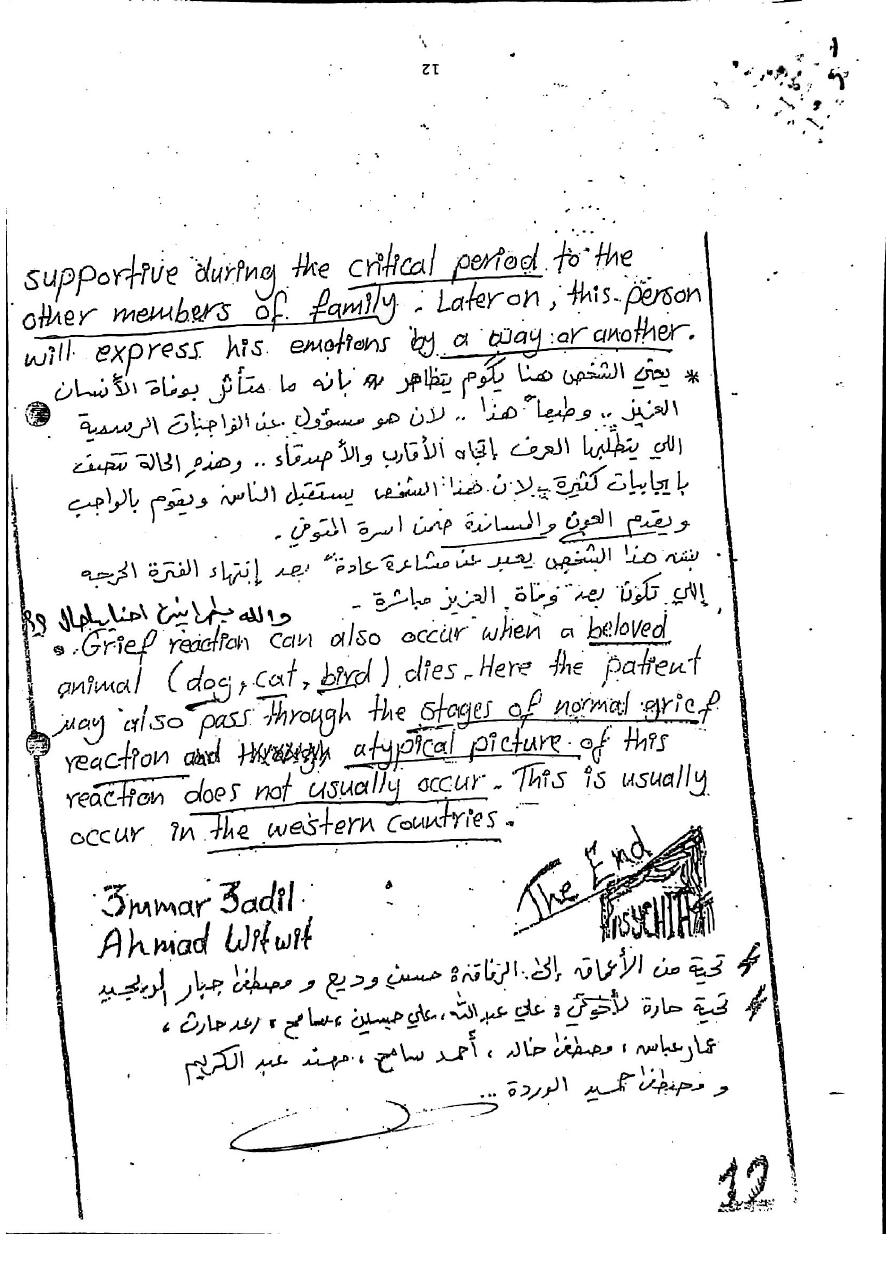 12
supportive during the critical period to the
other members of family. Later on, this person
will express his emotions by a way or another.
* يعني الشخص هنا يگوم يتظاهر بانه ما متأثر بوفاة الأنسان
العزيز .. وطبعاً هذا .. لان هو مسؤول عن الواجبات الرسمية
اللي يتطلبها العرف بإتجاه الأقارب والأصدقاء .. وهذه الحالة تتصف
بايجابيات كثيرة .. لان هذا الشخص يستقبل الناس ويقوم بالواجب
ويقدم العون والمساندة ضمن اسرة المتوفي .
هذا الشخص يعبر عن مشاعرة عادةً بعد إنتهاء الفترة الحرجه
إللي تكون بعد وفاة العزيز مباشرة .
والله احنا
Grief reaction can also occur when a beloved
animal (dog, cat, bird) dies. Here the patient
may also pass through the stages of normal grief
reaction and atypical picture of this
reaction does not usually occur. This is usually
occur in the western countries.
The End
3mmar 3adil
Ahmad Witwit
تحية من الأعماق إلى الرفاق: حسن وديع و مصطفى جبار
تحية حارة لأخوتي: علي عبدالله، علي حسين، سامح، رعد حارث،
عمار عباس، مصطفى خالد، أحمد سامح، مهند عبد الكريم
و مصطفى حميد الوردة ...
12